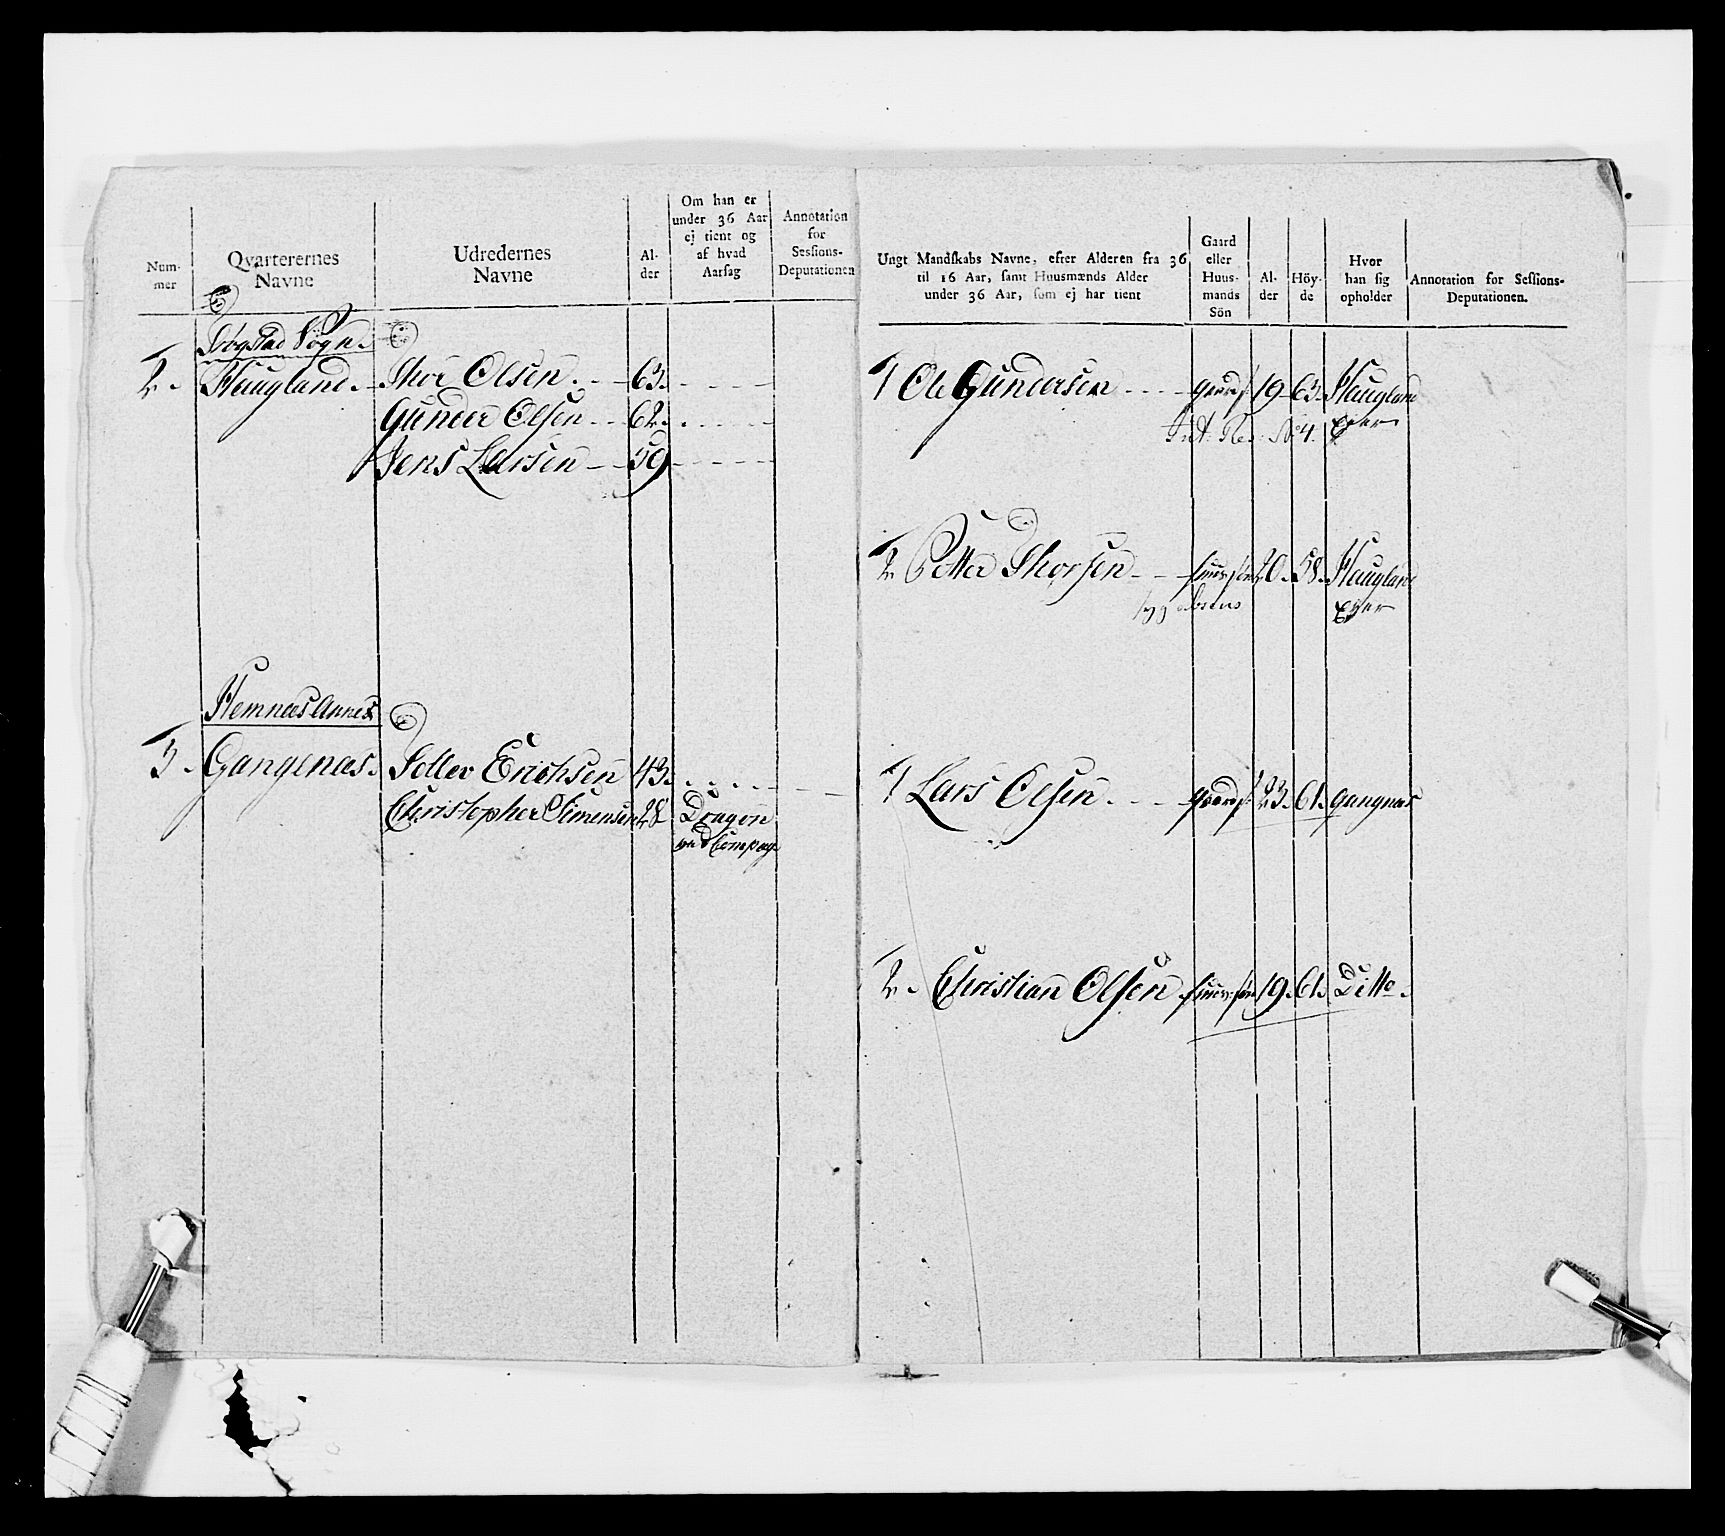 Num-
mer
Qvarterernes
Navne
Udredernes
Navne
Al-
der
Om han er
under 36 Aar
ej tient og
af hvad
Aarsag
Annotation
for
Sessions-
Deputationen
Trögstad Sogn.
2. Haugland. Thor Olsen. 63.
Gunder Olsen 62.
Jens Larsen 59
Hemnæs Annex
3. Gangenæs. Tollev Erichsen 43.
Christopher Simensen 28 Dragon
ved Compag.
Ungt Mandskabs Navne, efter Alderen fra 36
til 16 Aar, samt Huusmænds Alder
under 36 Aar, som ej har tient
Gaard
eller
Huus-
mands
Sön
Al-
der
Höy-
de
Hvor
han sig
opholder
Annotation for Sessions-
Deputationen.
1 Ole Gundersen gaards. 19 63. Haugland
No 4. Eyer
2 Petter Thorsen huus søn 20. 58. Haugland
Eyer
1 Lars Olsen. gaards. 23. 61. Gangnæs
2. Christian Olsen huus søn 19. 61. Ditto.